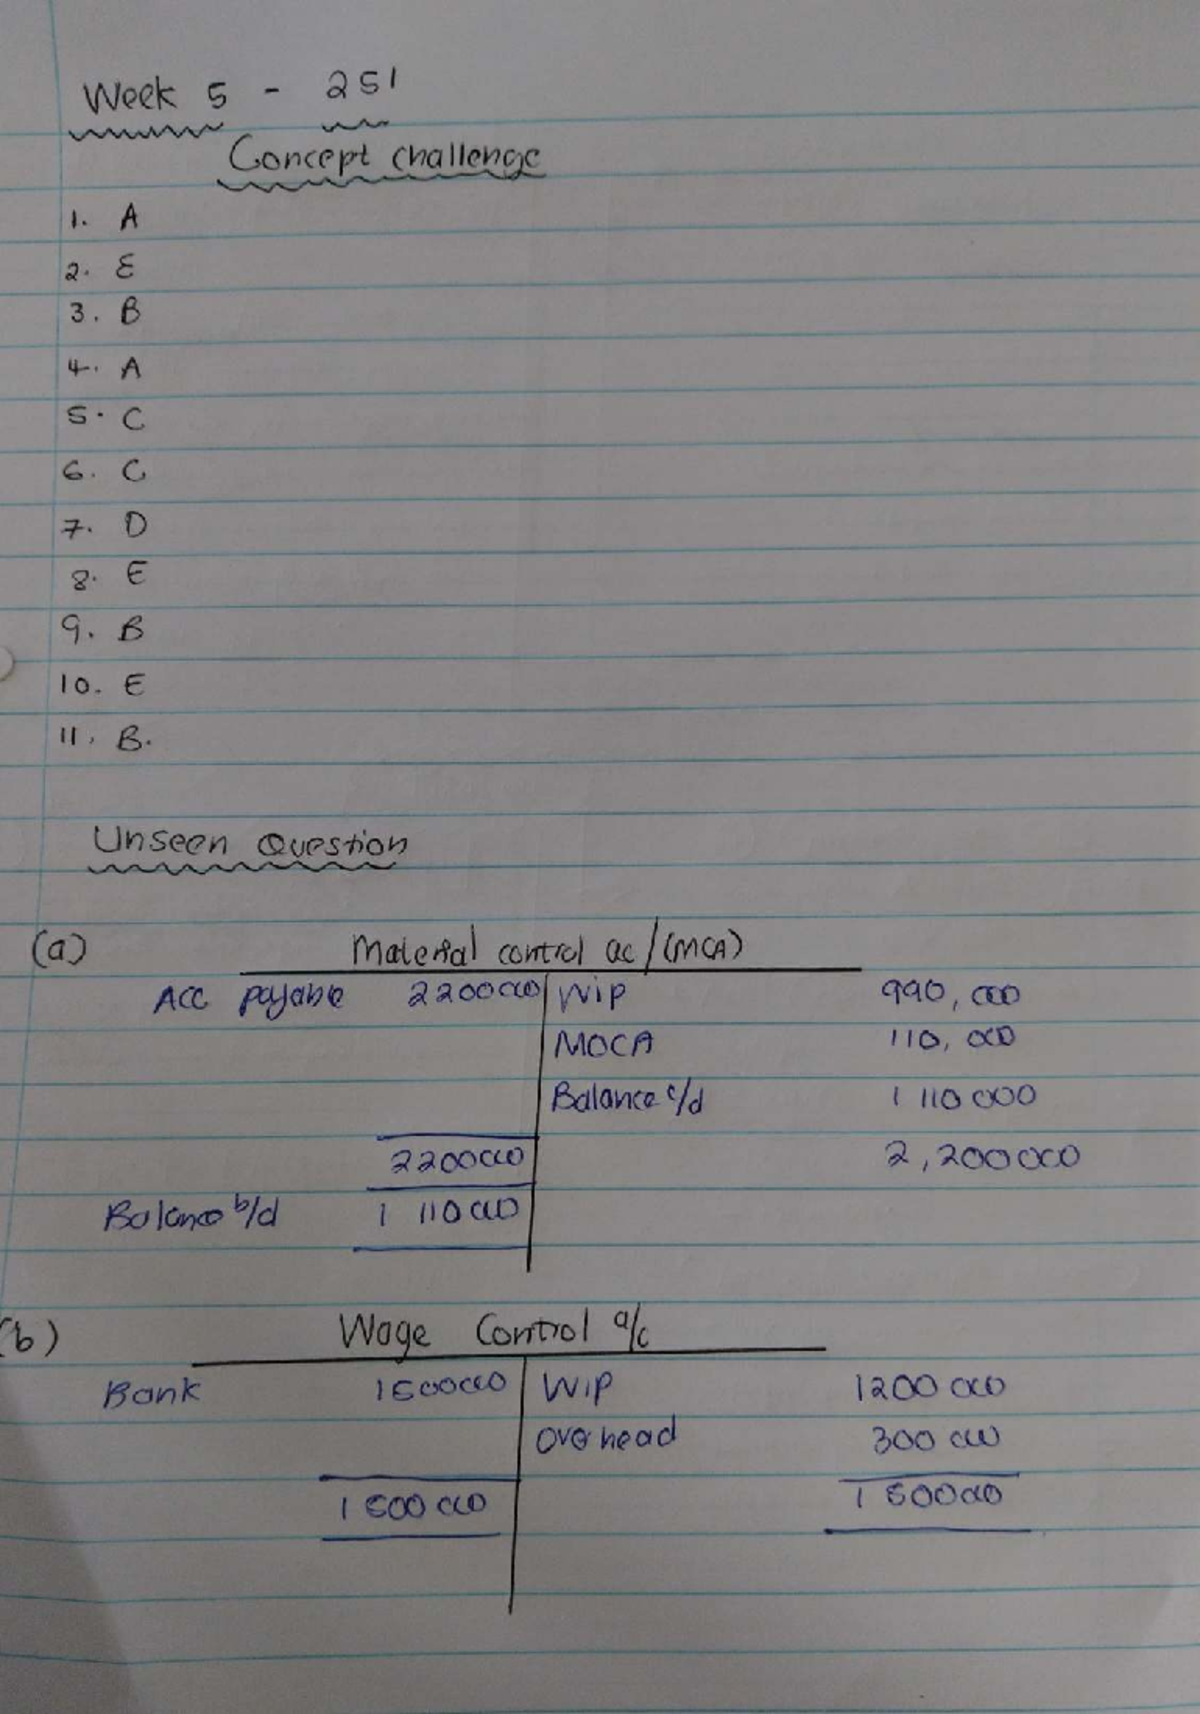 Week 5 - 251
Concept challenge
1. A
2. E
3. B
4. A
5. C
6. C
7. D
8. E
9. B
10. E
11. B.
Unseen Question
(a) Material control ac/(MCA)
Acc payable 2200000 WIP 990,000
MOCA 110,000
Balance c/d 1 110 000
2200000 2,200000
Balance b/d 1 110 000
(b) Wage Control a/c
Bank 1500000 WIP 1200 000
Overhead 300 000
1 500 000 1 500000